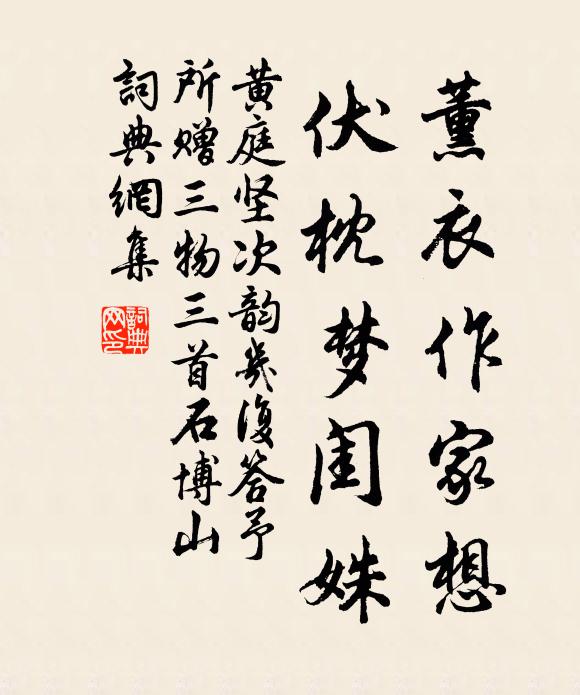 薰衣作家想
伏枕梦闺姝
黄庭坚次韵几復答予
所赠三物三首石博山
词典網集
詞典網印